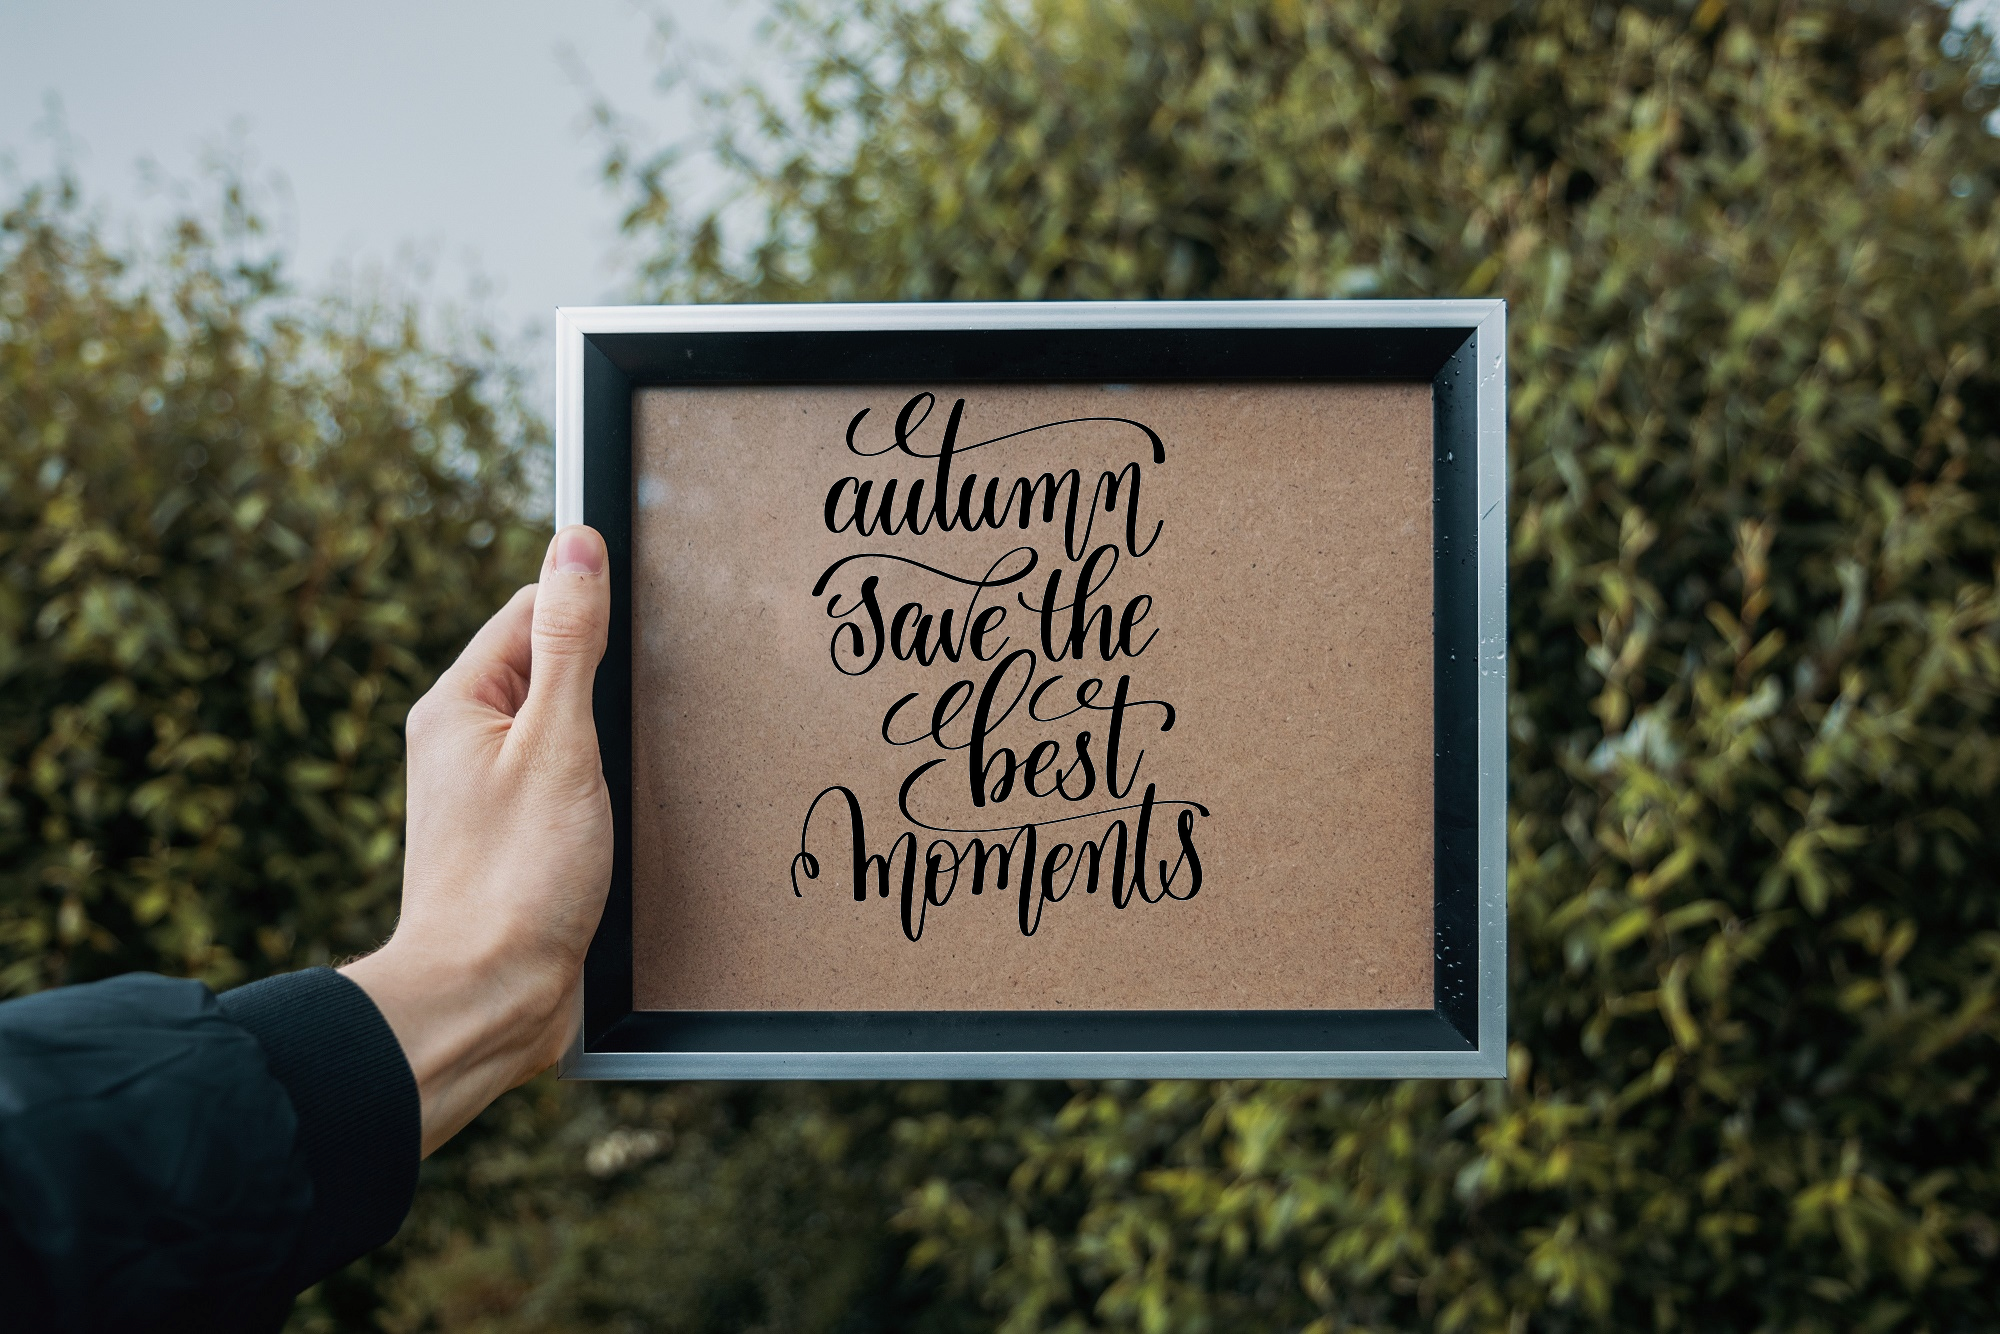 autumn
save the
best
moments